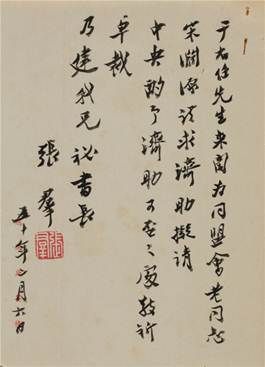 于右任先生來函為同盟會老同志
宋淵源請求濟助擬請
中央酌予濟助可否之處敬祈
卓裁
乃建我兄祕書長
張羣
張羣
五十年二月六日